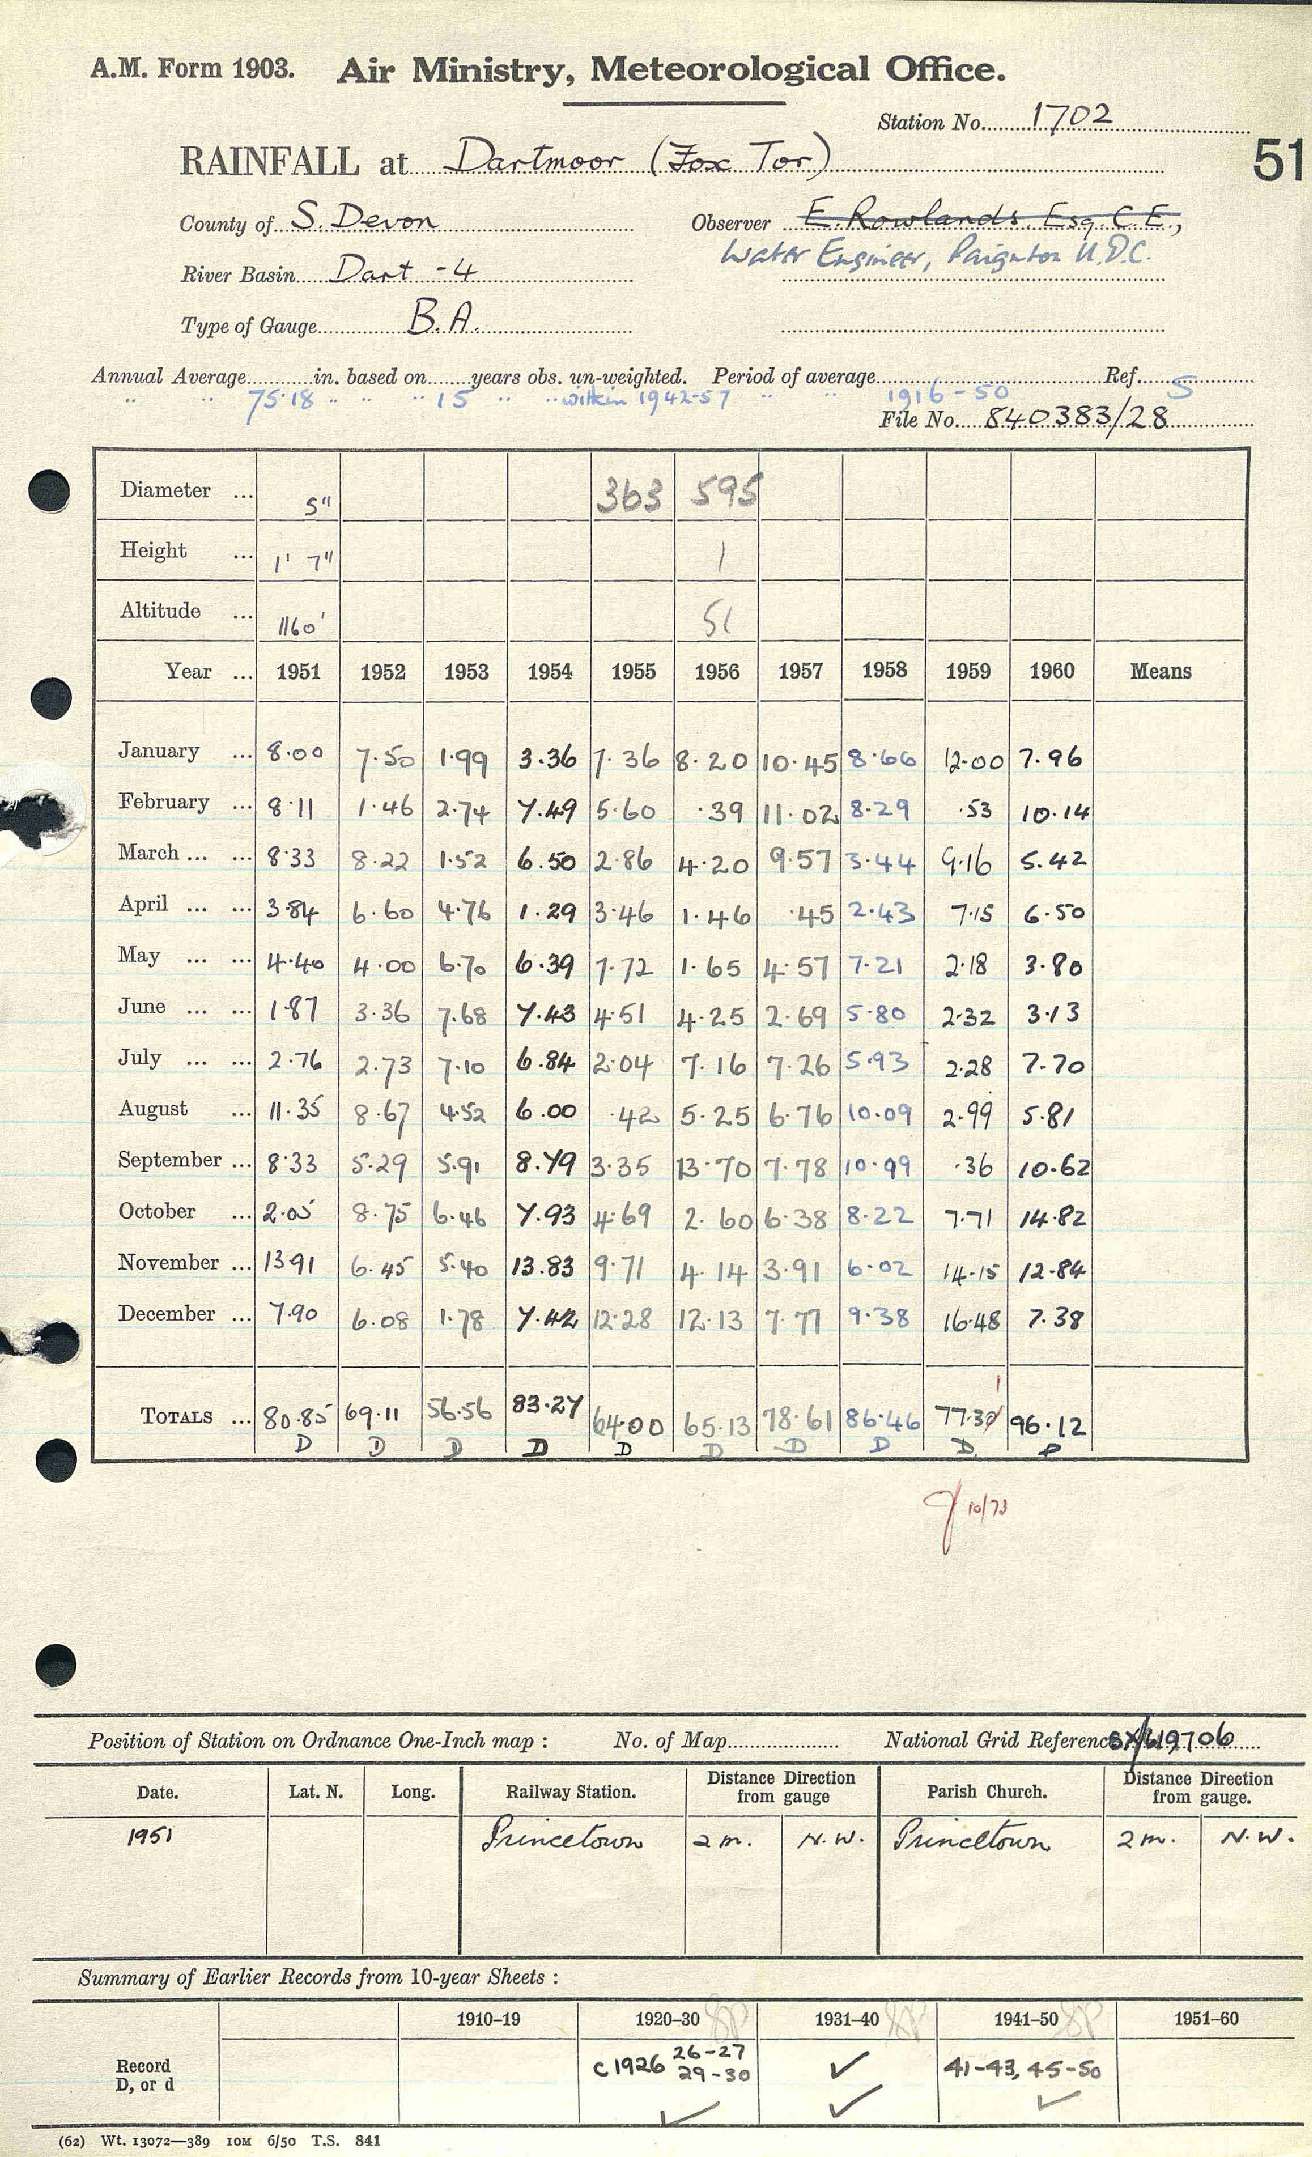 A.M. Form 1903. Air Ministry, Meteorological Office.
Station No. 1702
51
RAINFALL at Dartmoor (Fox Tor)
County of S. Devon Observer E. Rowlands. Esq. C.E.,
Water Engineer, Paignton U.D.C.
River Basin Dart - 4
Type of Gauge B.A.
Annual Average in. based on years obs. un-weighted. Period of average Ref. S
" " 75.18 " " " 15 " " within 1942-57 " " 1916-50
File No. 840383/28
Diameter ... 5" 363 595
Height ... 1' 7" 1
Altitude ... 1160' 51
Year ... 1951 1952 1953 1954 1955 1956 1957 1958 1959 1960 Means
January ... 8.00 7.50 1.99 3.36 7.36 8.20 10.45 8.66 12.00 7.96
February ... 8.11 1.46 2.74 7.49 5.60 .39 11.02 8.29 .53 10.14
March ... ... 8.33 8.22 1.52 6.50 2.86 4.20 9.57 3.44 9.16 5.42
April ... ... 3.84 6.60 4.76 1.29 3.46 1.46 .45 2.43 7.15 6.50
May ... ... 4.40 4.00 6.70 6.39 7.72 1.65 4.57 7.21 2.18 3.80
June ... ... 1.87 3.36 7.68 7.43 4.51 4.25 2.69 5.80 2.32 3.13
July ... ... 2.76 2.73 7.10 6.84 2.04 7.16 7.26 5.93 2.28 7.70
August ... 11.35 8.67 4.52 6.00 .42 5.25 6.76 10.09 2.99 5.81
September ... 8.33 5.29 5.91 8.79 3.35 13.70 7.78 10.99 .36 10.62
October ... 2.05 8.75 6.46 7.93 4.69 2.60 6.38 8.22 7.71 14.82
November ... 13.91 6.45 5.40 13.83 9.71 4.14 3.91 6.02 14.15 12.84
December ... 7.90 6.08 1.78 7.42 12.28 12.13 7.77 9.38 16.48 7.38
1
TOTALS ... 80.85 69.11 56.56 83.27 64.00 65.13 78.61 86.46 77.30 96.12
D D D D D D D D D
10/73
Position of Station on Ordnance One-Inch map : No. of Map National Grid Reference SX/619706
Date. Lat. N. Long. Railway Station. Distance Direction from gauge Parish Church. Distance Direction from gauge.
1951 Princetown 2 m. N.W. Princetown 2 m. N.W.
Summary of Earlier Records from 10-year Sheets :
1910–19 1920–30 1931–40 1941–50 1951–60
Record D, or d c1926 26-27 29-30 ✓ 41-43, 45-50
✓ ✓ ✓
(62) Wt. 13072—389 10M 6/50 T.S. 841